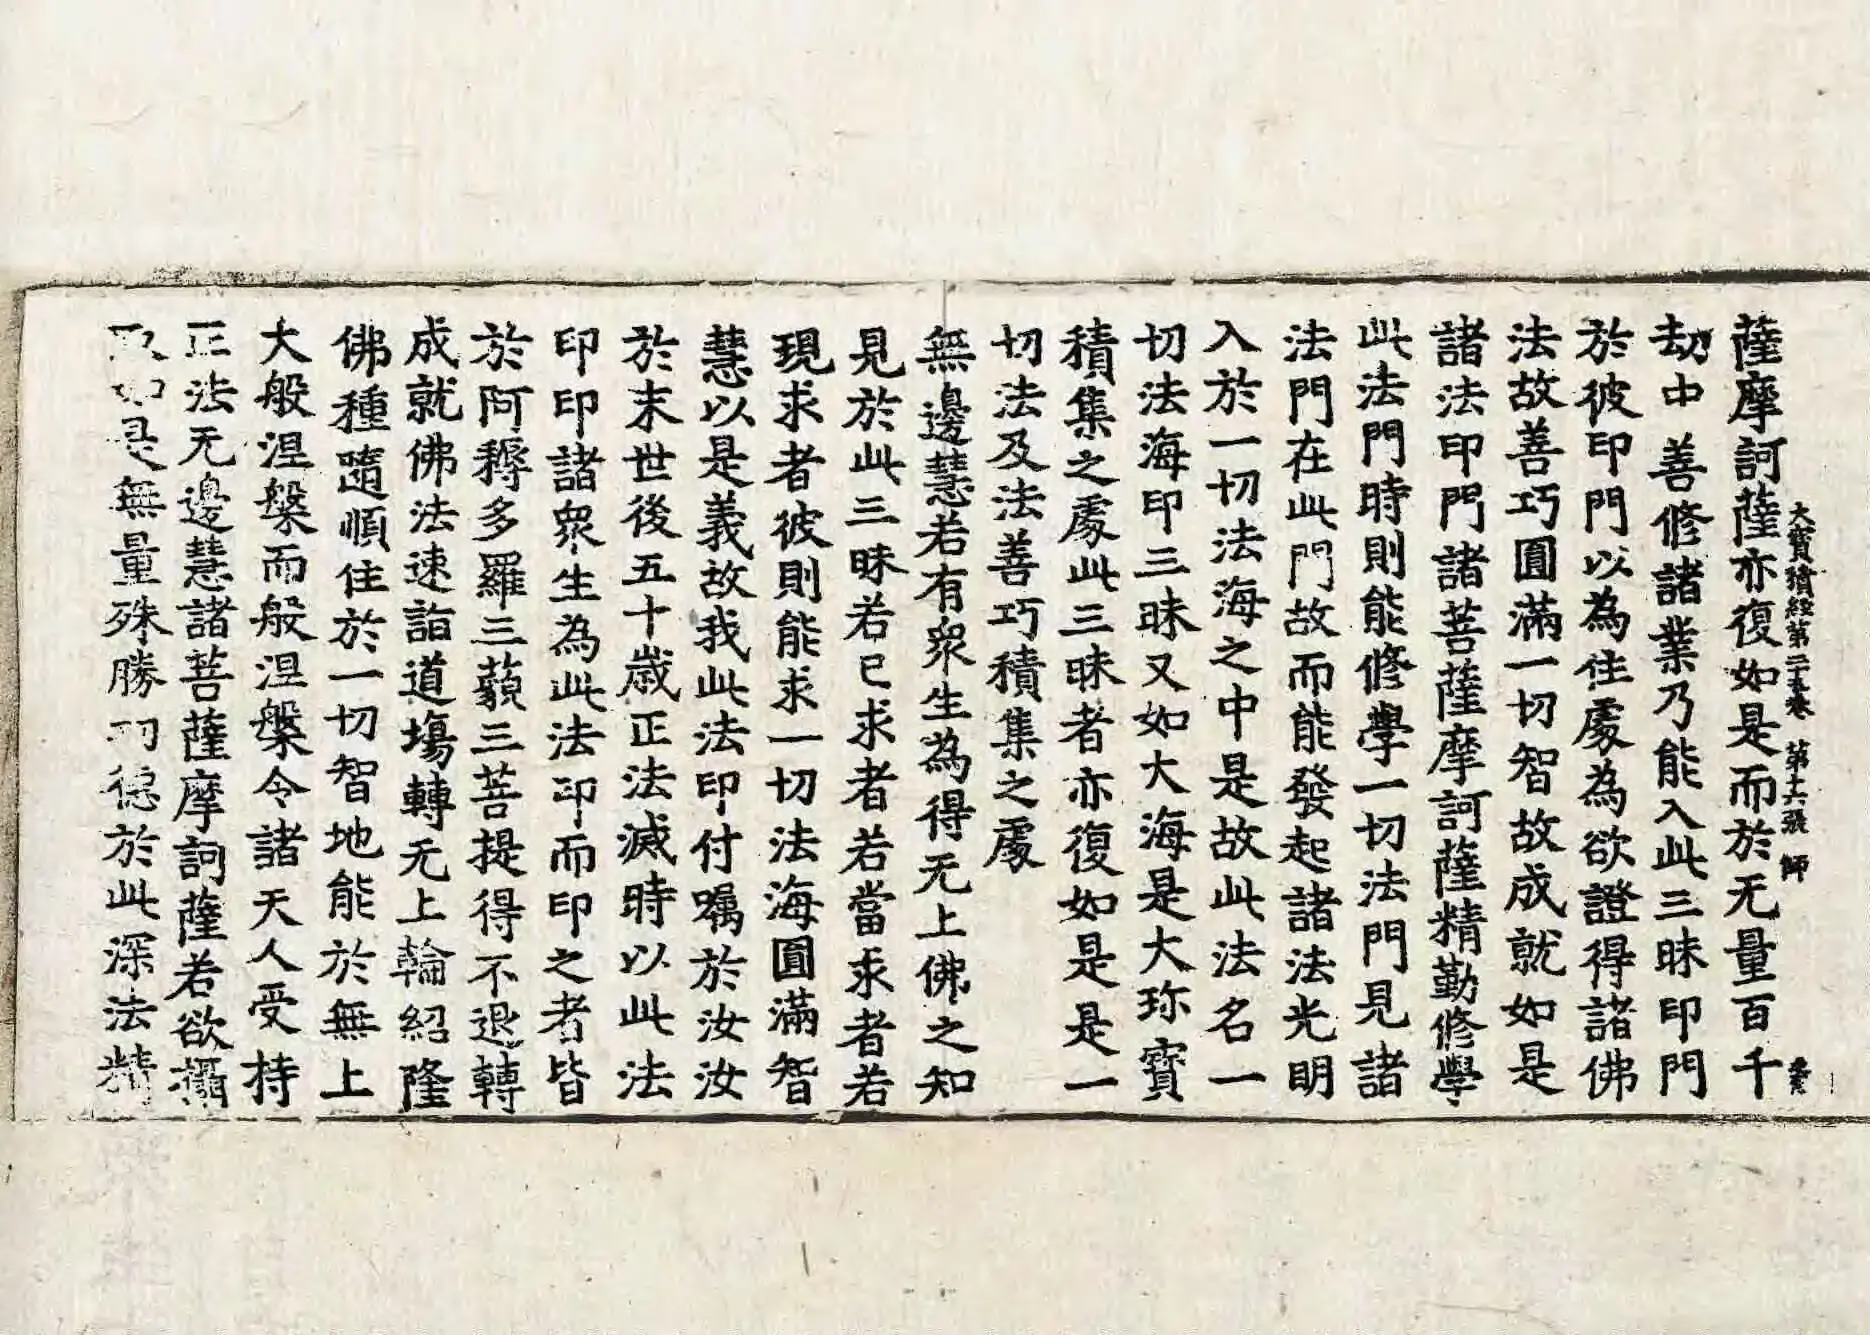 大寶積經第二五卷 第十六張 師
薩摩訶薩亦復如是而於无量百千
劫中善修諸業乃能入此三昧印門
於彼印門以為住處為欲證得諸佛
法故善巧圓滿一切智故成就如是
諸法印門諸菩薩摩訶薩精勤修學
此法門時則能修學一切法門見諸
法門在此門故而能發起諸法光明
入於一切法海之中是故此法名一
切法海印三昧又如大海是大珎寶
積集之處此三昧者亦復如是是一
切法及法善巧積集之處
無邊慧若有眾生為得无上佛之知
見於此三昧若已求者若當求者若
現求者彼則能求一切法海圓滿智
慧以是義故我此法印付囑於汝汝
於末世後五十歲正法滅時以此法
印印諸眾生為此法印而印之者皆
於阿耨多羅三藐三菩提得不退轉
成就佛法速詣道場轉无上輪紹隆
佛種隨順住於一切智地能於無上
大般涅槃而般涅槃令諸天人受持
正法无邊慧諸菩薩摩訶薩若欲攝
取如是無量殊勝功德於此深法精